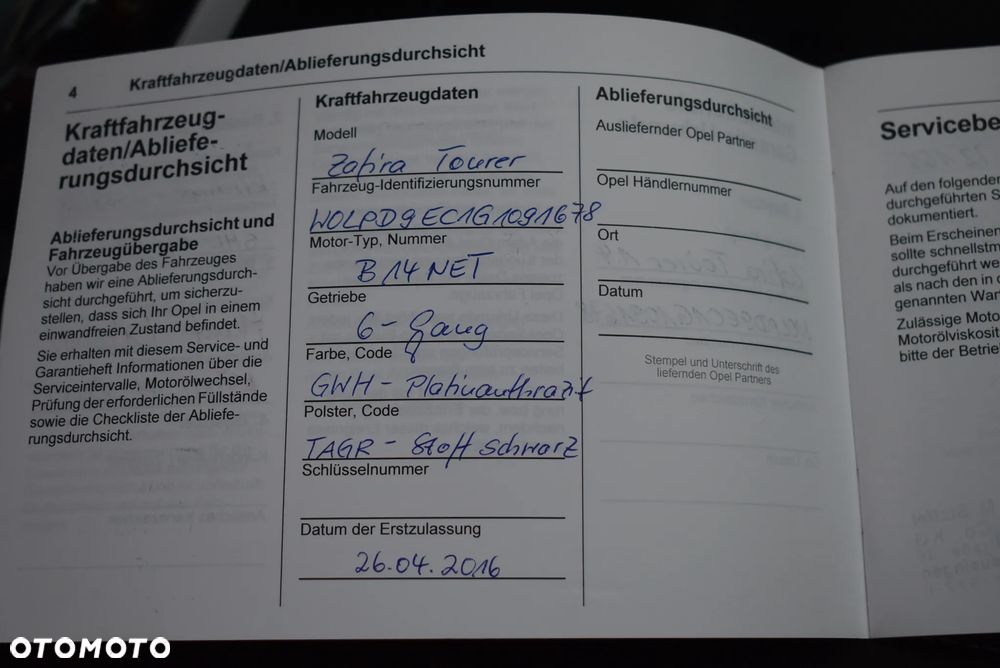 4
Kraftfahrzeugdaten/Ablieferungsdurchsicht
Kraftfahrzeug-
daten/Abliefe-
rungsdurchsicht
Ablieferungsdurchsicht und
Fahrzeugübergabe
Vor Übergabe des Fahrzeuges
haben wir eine Ablieferungsdurch-
sicht durchgeführt, um sicherzu-
stellen, dass sich Ihr Opel in einem
einwandfreien Zustand befindet.
Sie erhalten mit diesem Service- und
Garantieheft Informationen über die
Serviceintervalle, Motorölwechsel,
Prüfung der erforderlichen Füllstände
sowie die Checkliste der Abliefe-
rungsdurchsicht.
Kraftfahrzeugdaten
Modell
Zafira Tourer
Fahrzeug-Identifizierungsnummer
WOLPD9EC1G1091678
Motor-Typ, Nummer
B14NET
Getriebe
6-Gang
Farbe, Code
GWH - Platinanthrazit
Polster, Code
TAGR - Stoff Schwarz
Schlüsselnummer
Datum der Erstzulassung
26.04.2016
Ablieferungsdurchsicht
Ausliefernder Opel Partner
Opel Händlernummer
Ort
Datum
Stempel und Unterschrift des
liefernden Opel Partners
Servicebe
Auf den folgenden
durchgeführten S
dokumentiert.
Beim Erscheinen
sollte schnellstm
durchgeführt we
als nach den in d
genannten War
Zulässige Moto
Motorölviskosit
bitte der Betrie
OTOMOTO